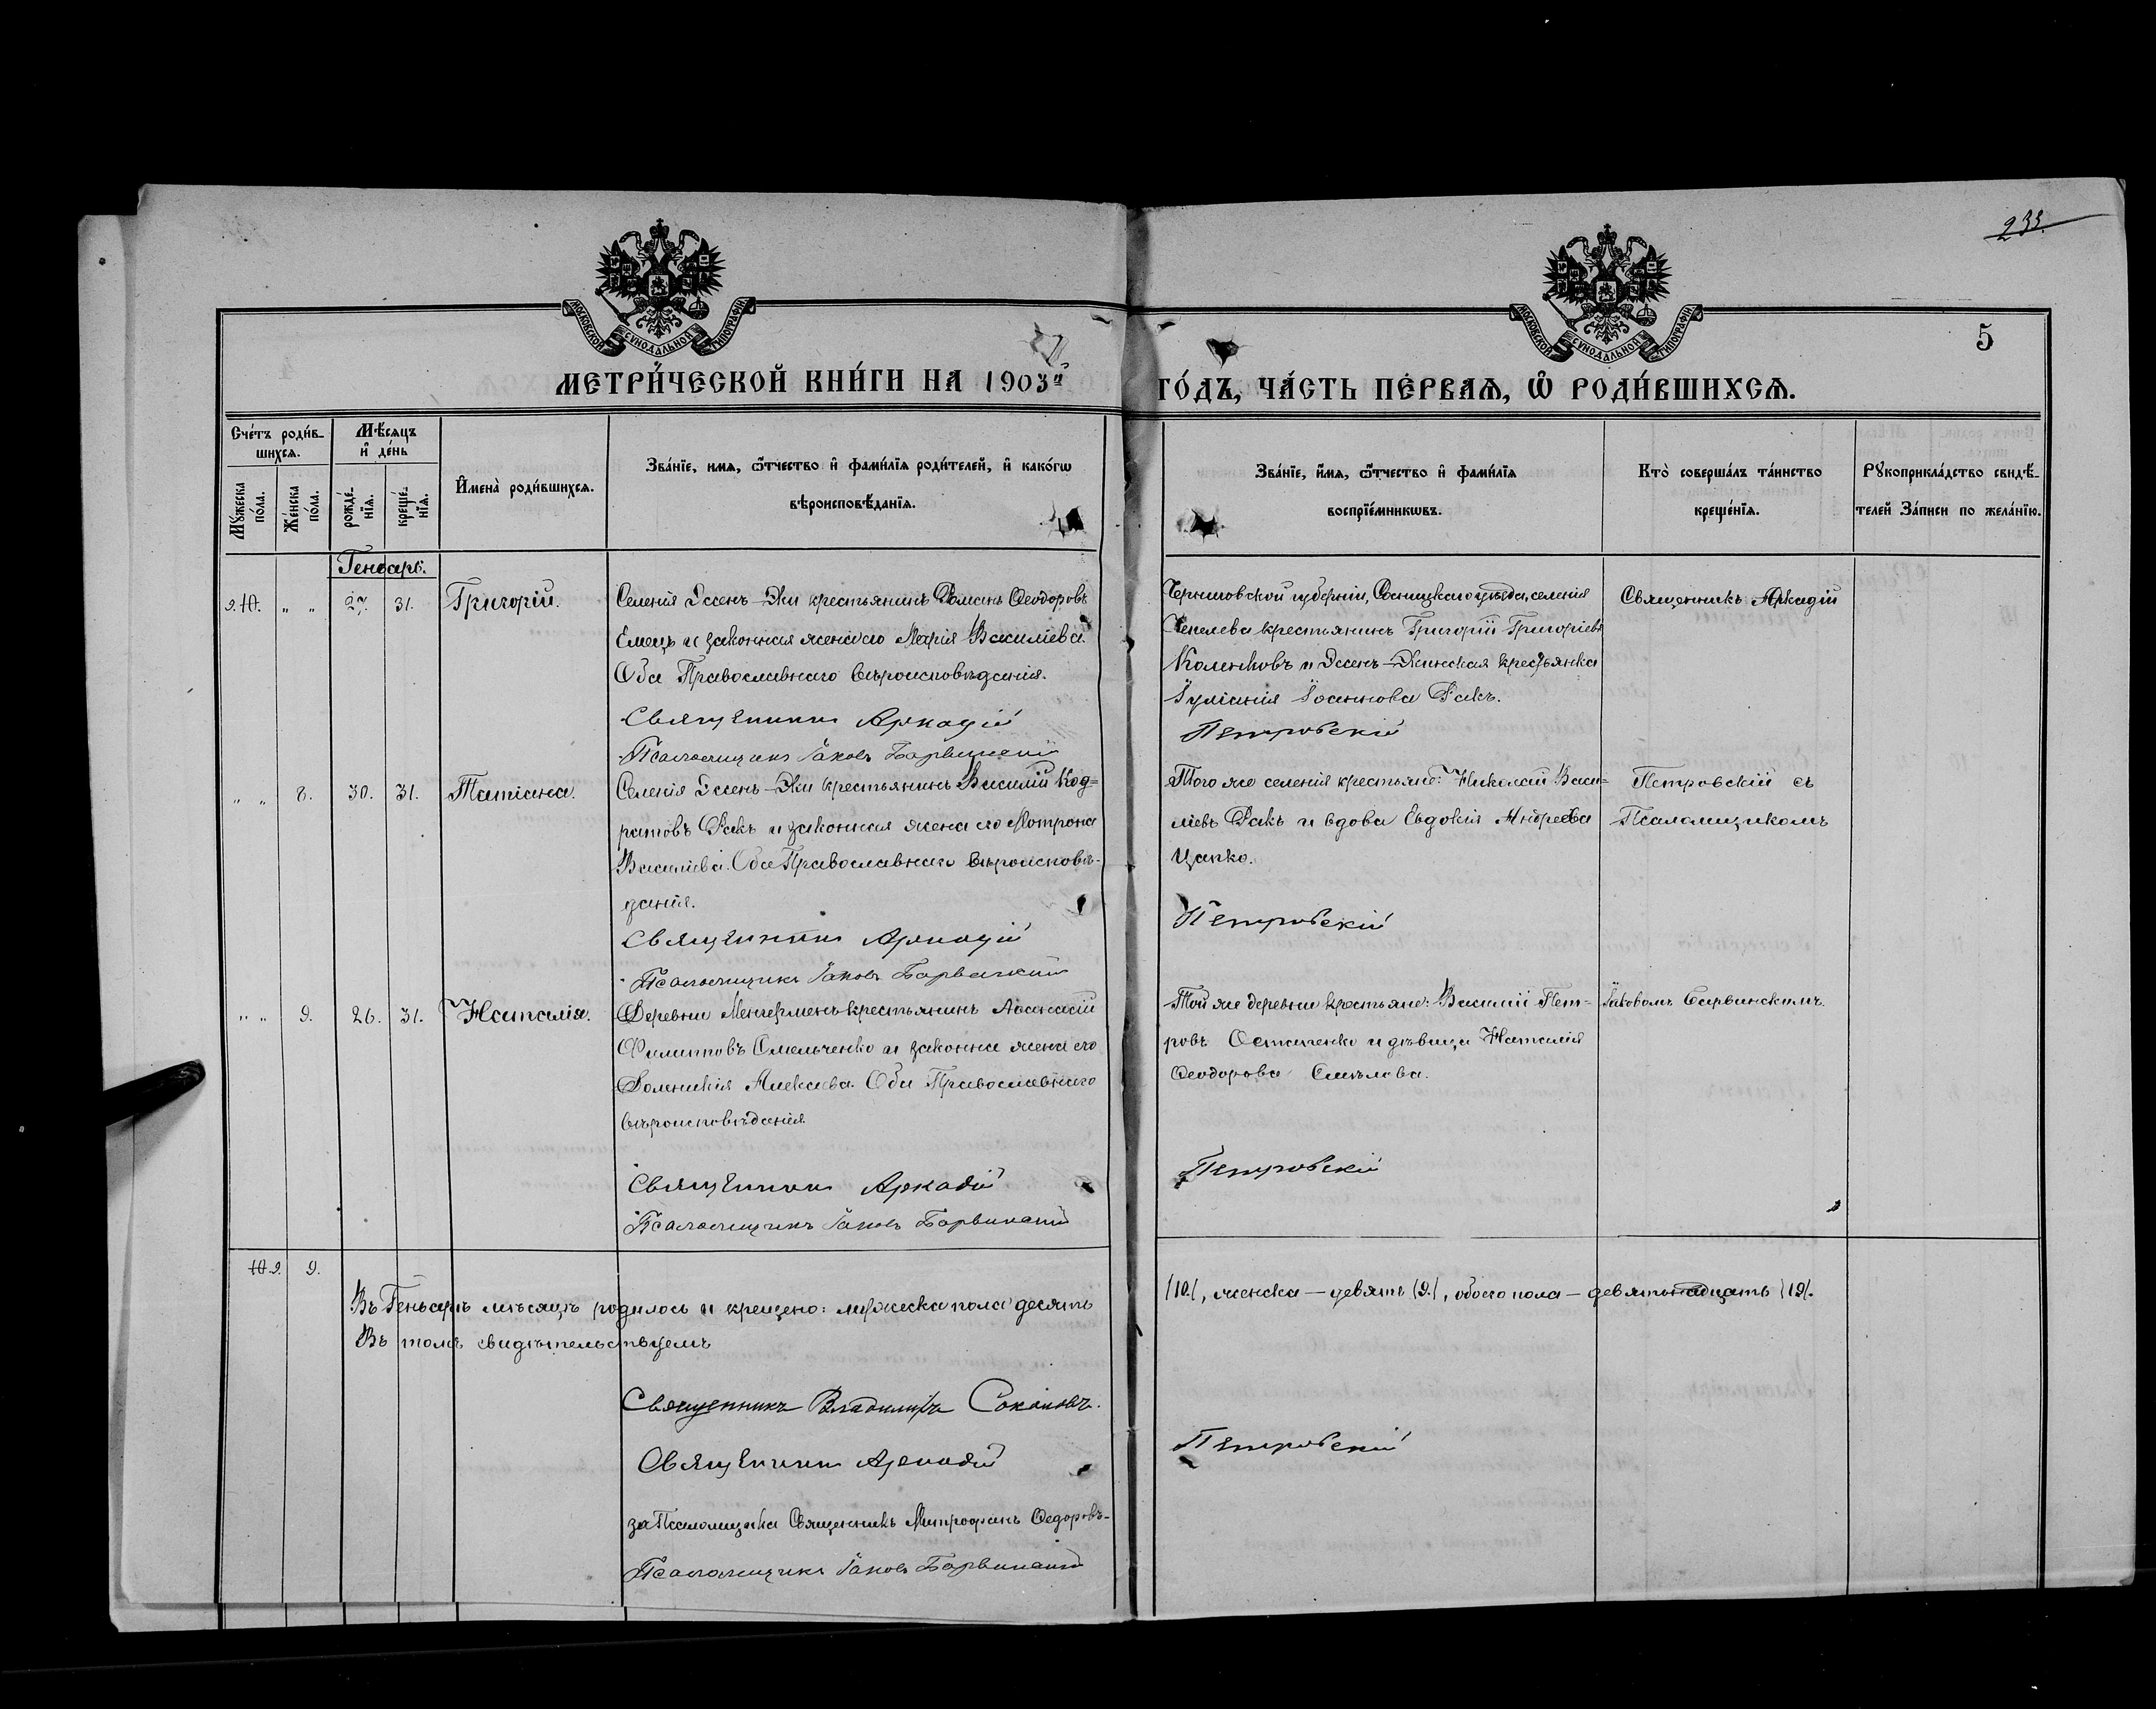 233.
МОСКОВСКОЙ СѴНОДАЛЬНОЙ ТИПОГРАФІИ
МОСКОВСКОЙ СѴНОДАЛЬНОЙ ТИПОГРАФІИ
5
МЕТРИ́ЧЕСКОЙ КНИ́ГИ НА 1903й ГО́ДЪ, ЧА́СТЬ ПЕ́РВАѦ, Ѡ҆ РОДИ́ВШИХСѦ.
Сче́тъ роди́в-
шихся.
Мѣ́сяцъ
и҆ де́нь
Мꙋ́жеска по́ла.
Же́нска по́ла.
рожде́-нїѧ.
креще́-нїѧ.
И҆мена̀ роди́вшихсѧ.
Зва́нїе, имѧ, ѻ҆́тчество и҆ фами́лїѧ роди́телей, и҆ како́гѡ
вѣроисповѣ́данїѧ.
Зва́нїе, и҆́мѧ, ѻ҆́тчество и҆ фами́лїѧ
воспрїе́мникѡвъ.
Кто̀ соверша́лъ та́инство
креще́нїѧ.
Рꙋкоприкла́дство свидѣ́-
телей За́писи по жела́нїю.
Генварь.
9. 10. " " 27. 31. Григорій.
Селенія Эсенъ-Эки крестьянинъ Романъ Ѳеодоровъ
Емецъ и законная жена его Марія Василіева.
Оба Православнаго вѣроисповѣданія.
Священникъ Аркадій
Псаломщикъ Іаковъ Барвинскій
Черниговской губерніи, уѣзда, селенія
крестьянинъ Григорій Григоріевъ
и Эсенъ-Экинская крестьянка
Іуліанія Іоаннова Ракъ.
Петровскій
Священникъ Аркадій
" " 8. 30. 31. Татіана.
Селенія Эсенъ-Эки крестьянинъ Василій Код-
ратовъ Ракъ и законная жена его Мотрона
Василіева. Оба Православнаго вѣроисповѣ-
данія.
Священникъ Аркадій
Псаломщикъ Іаковъ Барвинскій
Того же селенія крестьяне: Николай Васи-
ліевъ Ракъ и вдова Евдокія Андреева
Цапко.
Петровскій
Петровскій съ
Псаломщикомъ
" " 9. 26. 31. Наталія.
Деревни крестьянинъ Аѳанасій
Филипповъ Омельченко и законна жена его
Домникія Алексѣева. Оба Православнаго
вѣроисповѣданія
Священникъ Аркадій
Псаломщикъ Іаковъ Барвинскій
Той же деревни крестьяне: Василій Пет-
ровъ Остапенко и дѣвица Наталія
Ѳеодорова
Петровскій
Іаковомъ Барвинскимъ.
10 9. 9.
Въ Генварѣ мѣсяцѣ родилось и крещено: мужеска пола десять
(10), женска — девять (9), обоего пола — девятнадцать (19).
Въ томъ свидѣтельствуемъ
Священникъ Владиміръ Соколовъ.
Священникъ Аркадій
Петровскій
за Псаломщика Священникъ Митрофанъ Ѳедоровъ-
Псаломщикъ Іаковъ Барвинскій